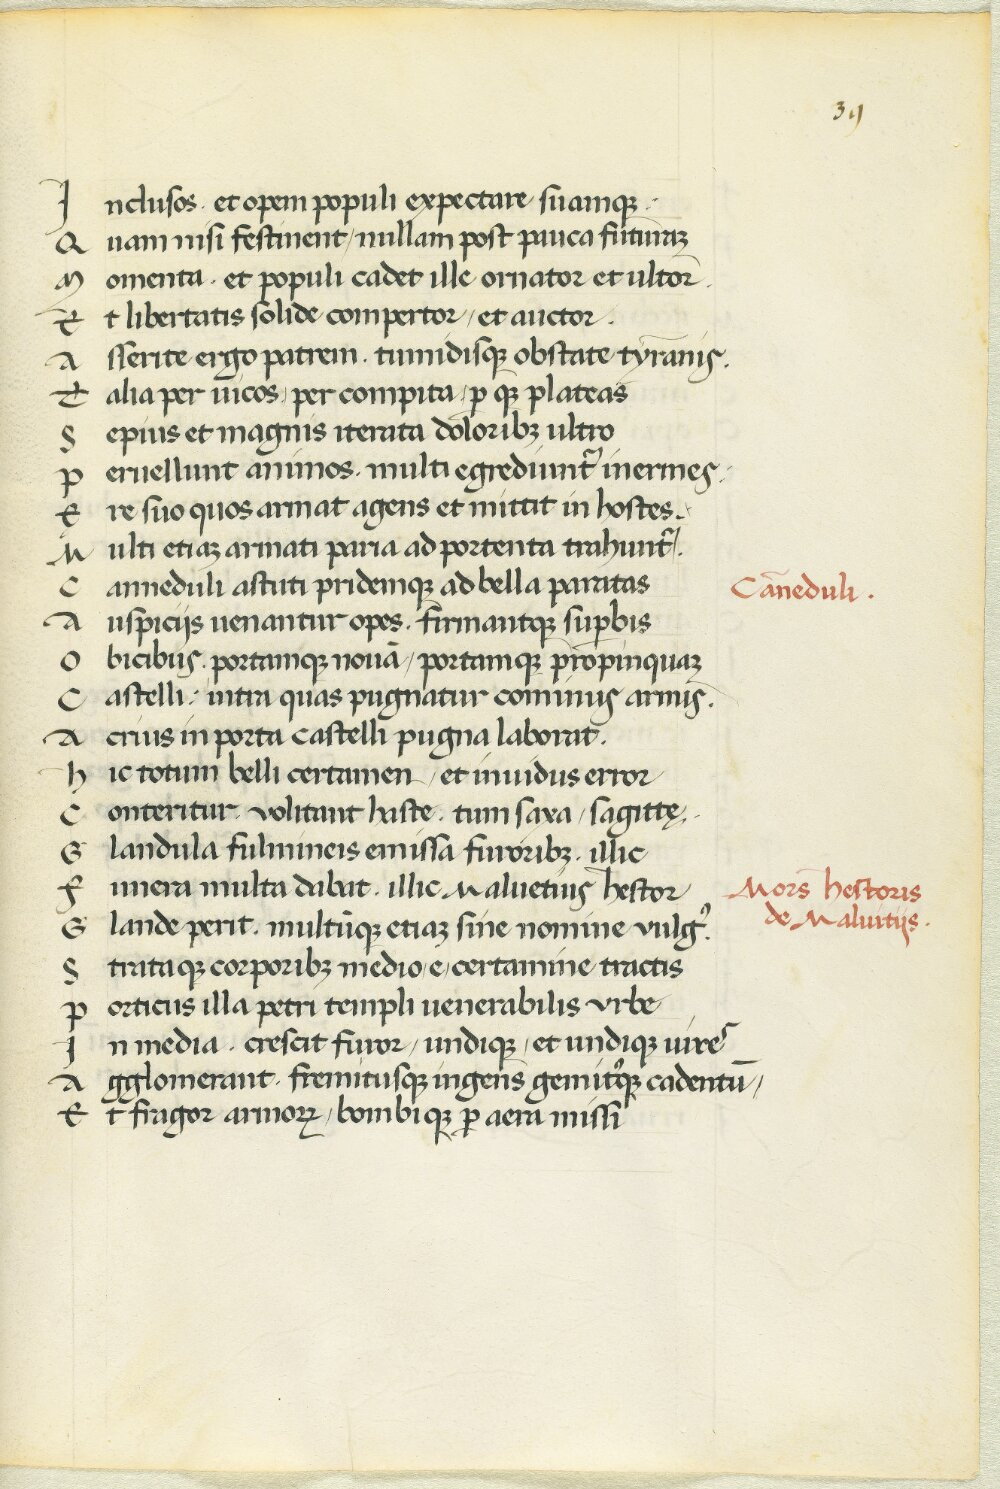 39
Inclusos · et opem populi expectare suamqꝫ ·
Quam nisi festinent / nullam post pauca futuraꝫ
Momenta · et populi cadet ille ornator et ultor ·
Et libertatis solide compertor / et auctor ·
Asserite ergo patrem · tumidisqꝫ obstate tyrannis ·
Talia per uicos / per compita / ꝑ qꝫ plateas
Sepius et magnis iterata doloribꝫ ultro
Peruellunt animos · multi egrediunt᷑ inermes ·
Ere suo quos armat agens et mittit in hostes ·
Multi etiaꝫ armati paria ad portenta trahunt᷑ ·
Canneduli astuti pridemqꝫ ad bella paratas
Cāneduli ·
Auspiciis uenantur opes · firmantqꝫ suꝑbis
Obicibus · portamqꝫ nouā / portamqꝫ propinquaꝫ
Castelli · intra quas pugnatur cominus armis ·
Acrius in porta castelli pugna laborat ·
Hic totum belli certamen / et inuidus error
Conteritur · volitant haste · tum saxa / sagittę ·
Glandula fulmineis emissa furoribꝫ · illic
Funera multa dabat · illic Maluetius hestor
Mors hestoris
de Maluitijs ·
Glande perit · multūqꝫ etiaꝫ sine nomine vulgꝰ ·
Strataqꝫ corporibꝫ medio / e / certamine tractis
Porticus illa petri templi uenerabilis vrbe
In media · crescit furor / undiqꝫ / et undiqꝫ uires
Agglomerant · fremitusqꝫ ingens gemitꝰqꝫ cadentū /
Et fragor armoꝝ / bombiqꝫ ꝑ aera missi